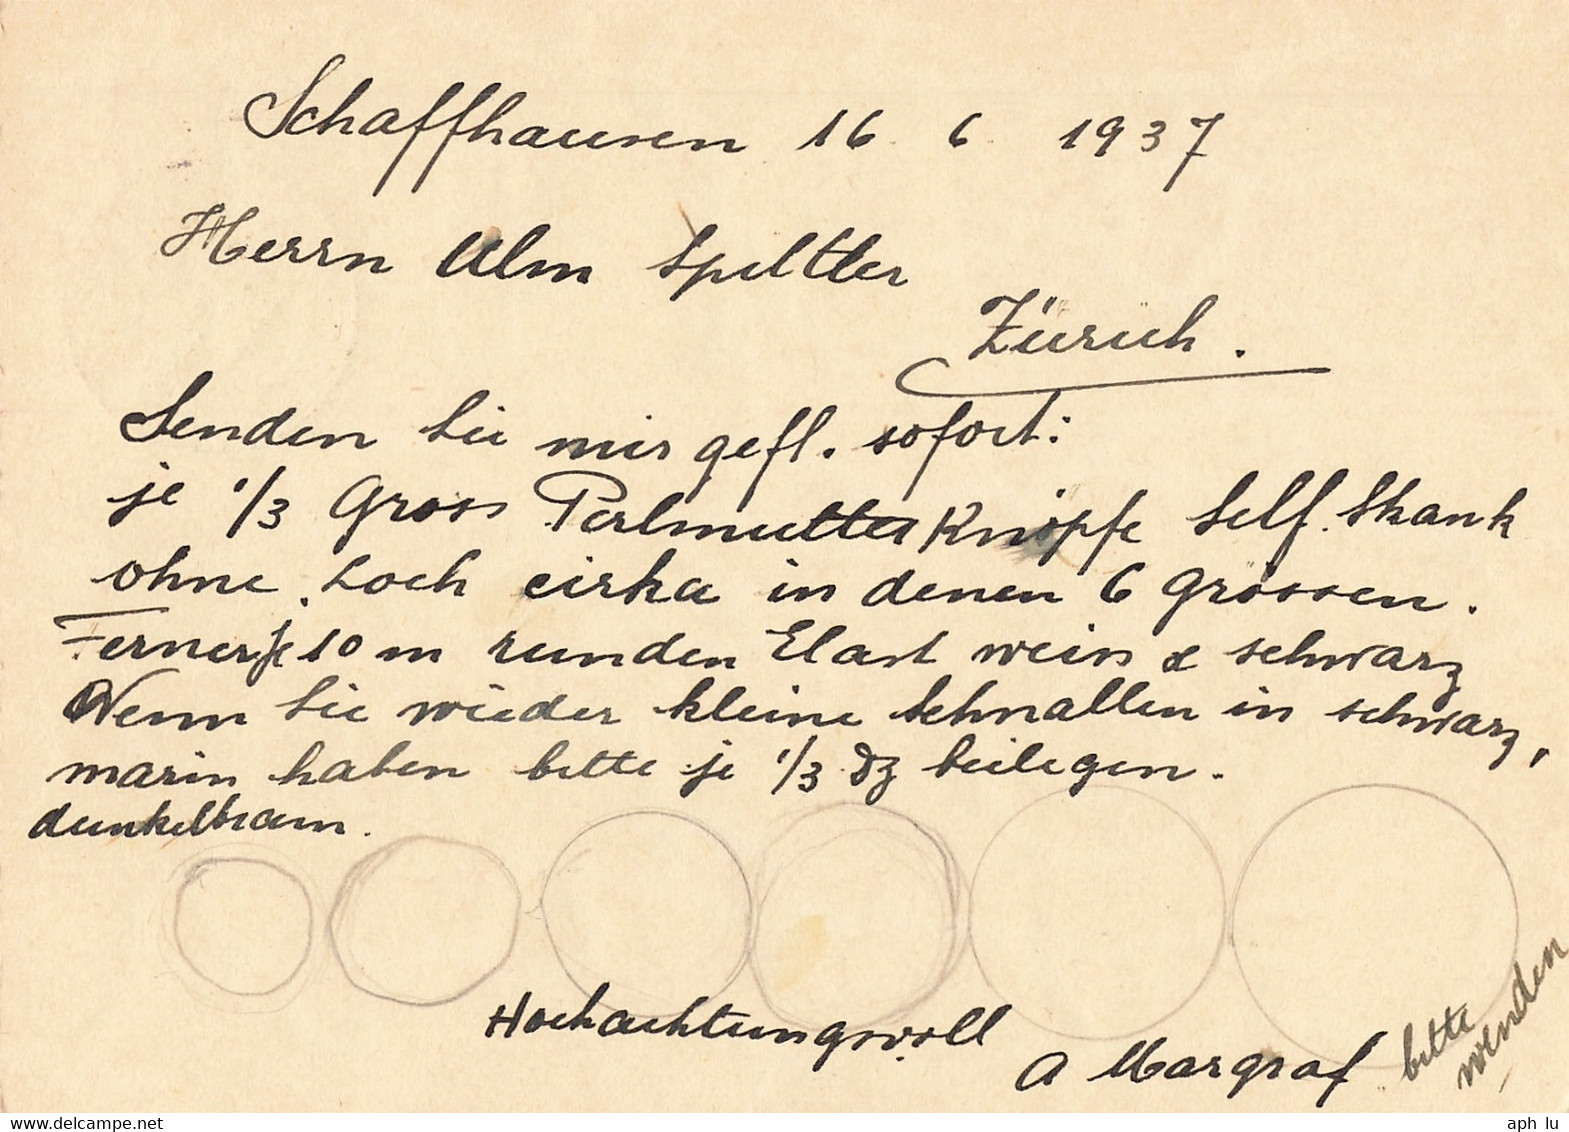 Schaffhausen 16. 6. 1937
Herrn Ulm Speltler
Zürich.
Senden Sie mir gefl. sofort:
je 1/3 Gross Perlmutter Knöpfe Self. Shank
ohne Loch cirka in denen 6 Grössen.
Ferner je 10 m runden Elast weiss & schwarz
Wenn Sie wieder kleine Schnallen in schwarz,
marin haben bitte je 1/3 Dz beilegen.
dunkelbraun.
Hochachtungsvoll
A Margraf
bitte
wenden
aph lu